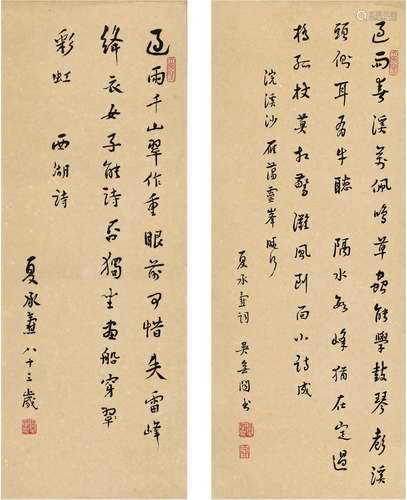 過雨春溪萬佩鳴草蟲能學鼓琴聲溪
頭側耳有牛聽 隔水數峰猶在定過
橋孤杖莫相驚灘風到面小詩成
浣溪沙 雁蕩靈峰
夏承燾詞 吳無聞書
過雨千山翠作重眼前可惜失雷峰
絳衣女子能詩否獨坐畫船穿翠
彩虹 西湖詩
夏承燾八十三歲